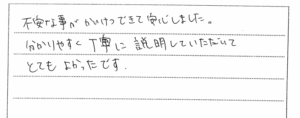 不安な事がかいけつできて安心しました。
分かりやすく丁寧に説明していただいて
とてもよかったです.